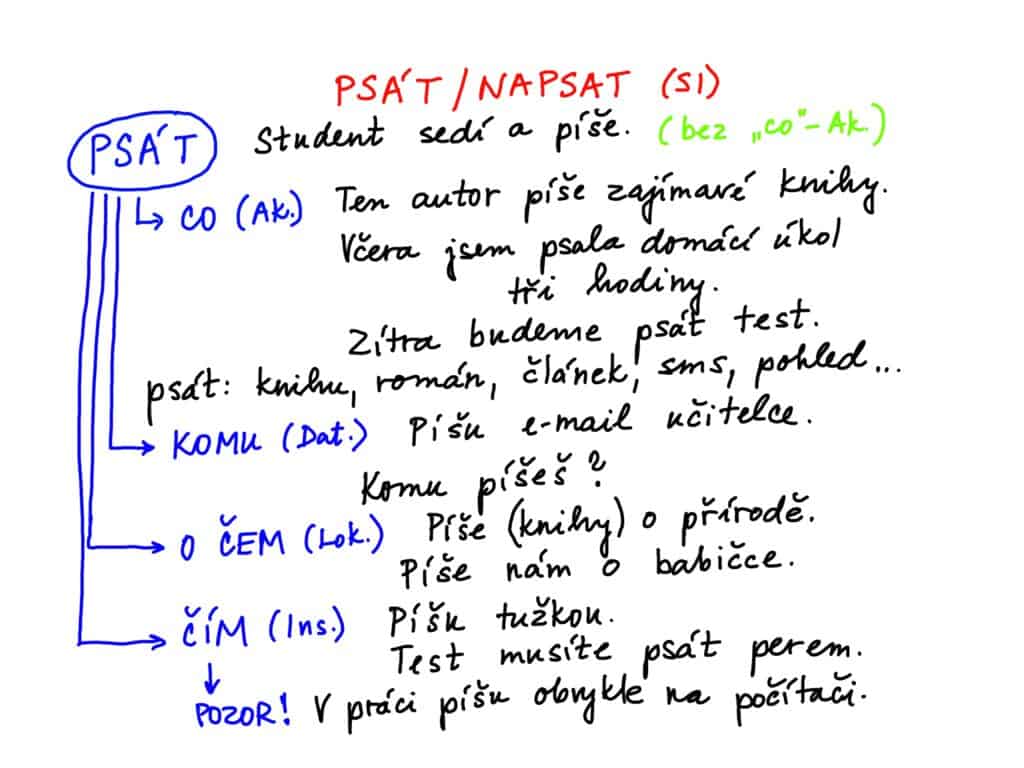 PSÁT/NAPSAT (SI)
PSÁT Student sedí a píše. (bez „co"-Ak.)
CO (Ak.) Ten autor píše zajímavé knihy.
Včera jsem psala domácí úkol
tři hodiny.
Zítra budeme psát test.
psát: knihu, román, článek, sms, pohled...
KOMU (Dat.) Píšu e-mail učitelce.
Komu píšeš?
O ČEM (Lok.) Píše (knihy) o přírodě.
Píše nám o babičce.
ČÍM (Ins.) Píšu tužkou.
Test musíte psát perem.
POZOR! V práci píšu obvykle na počítači.